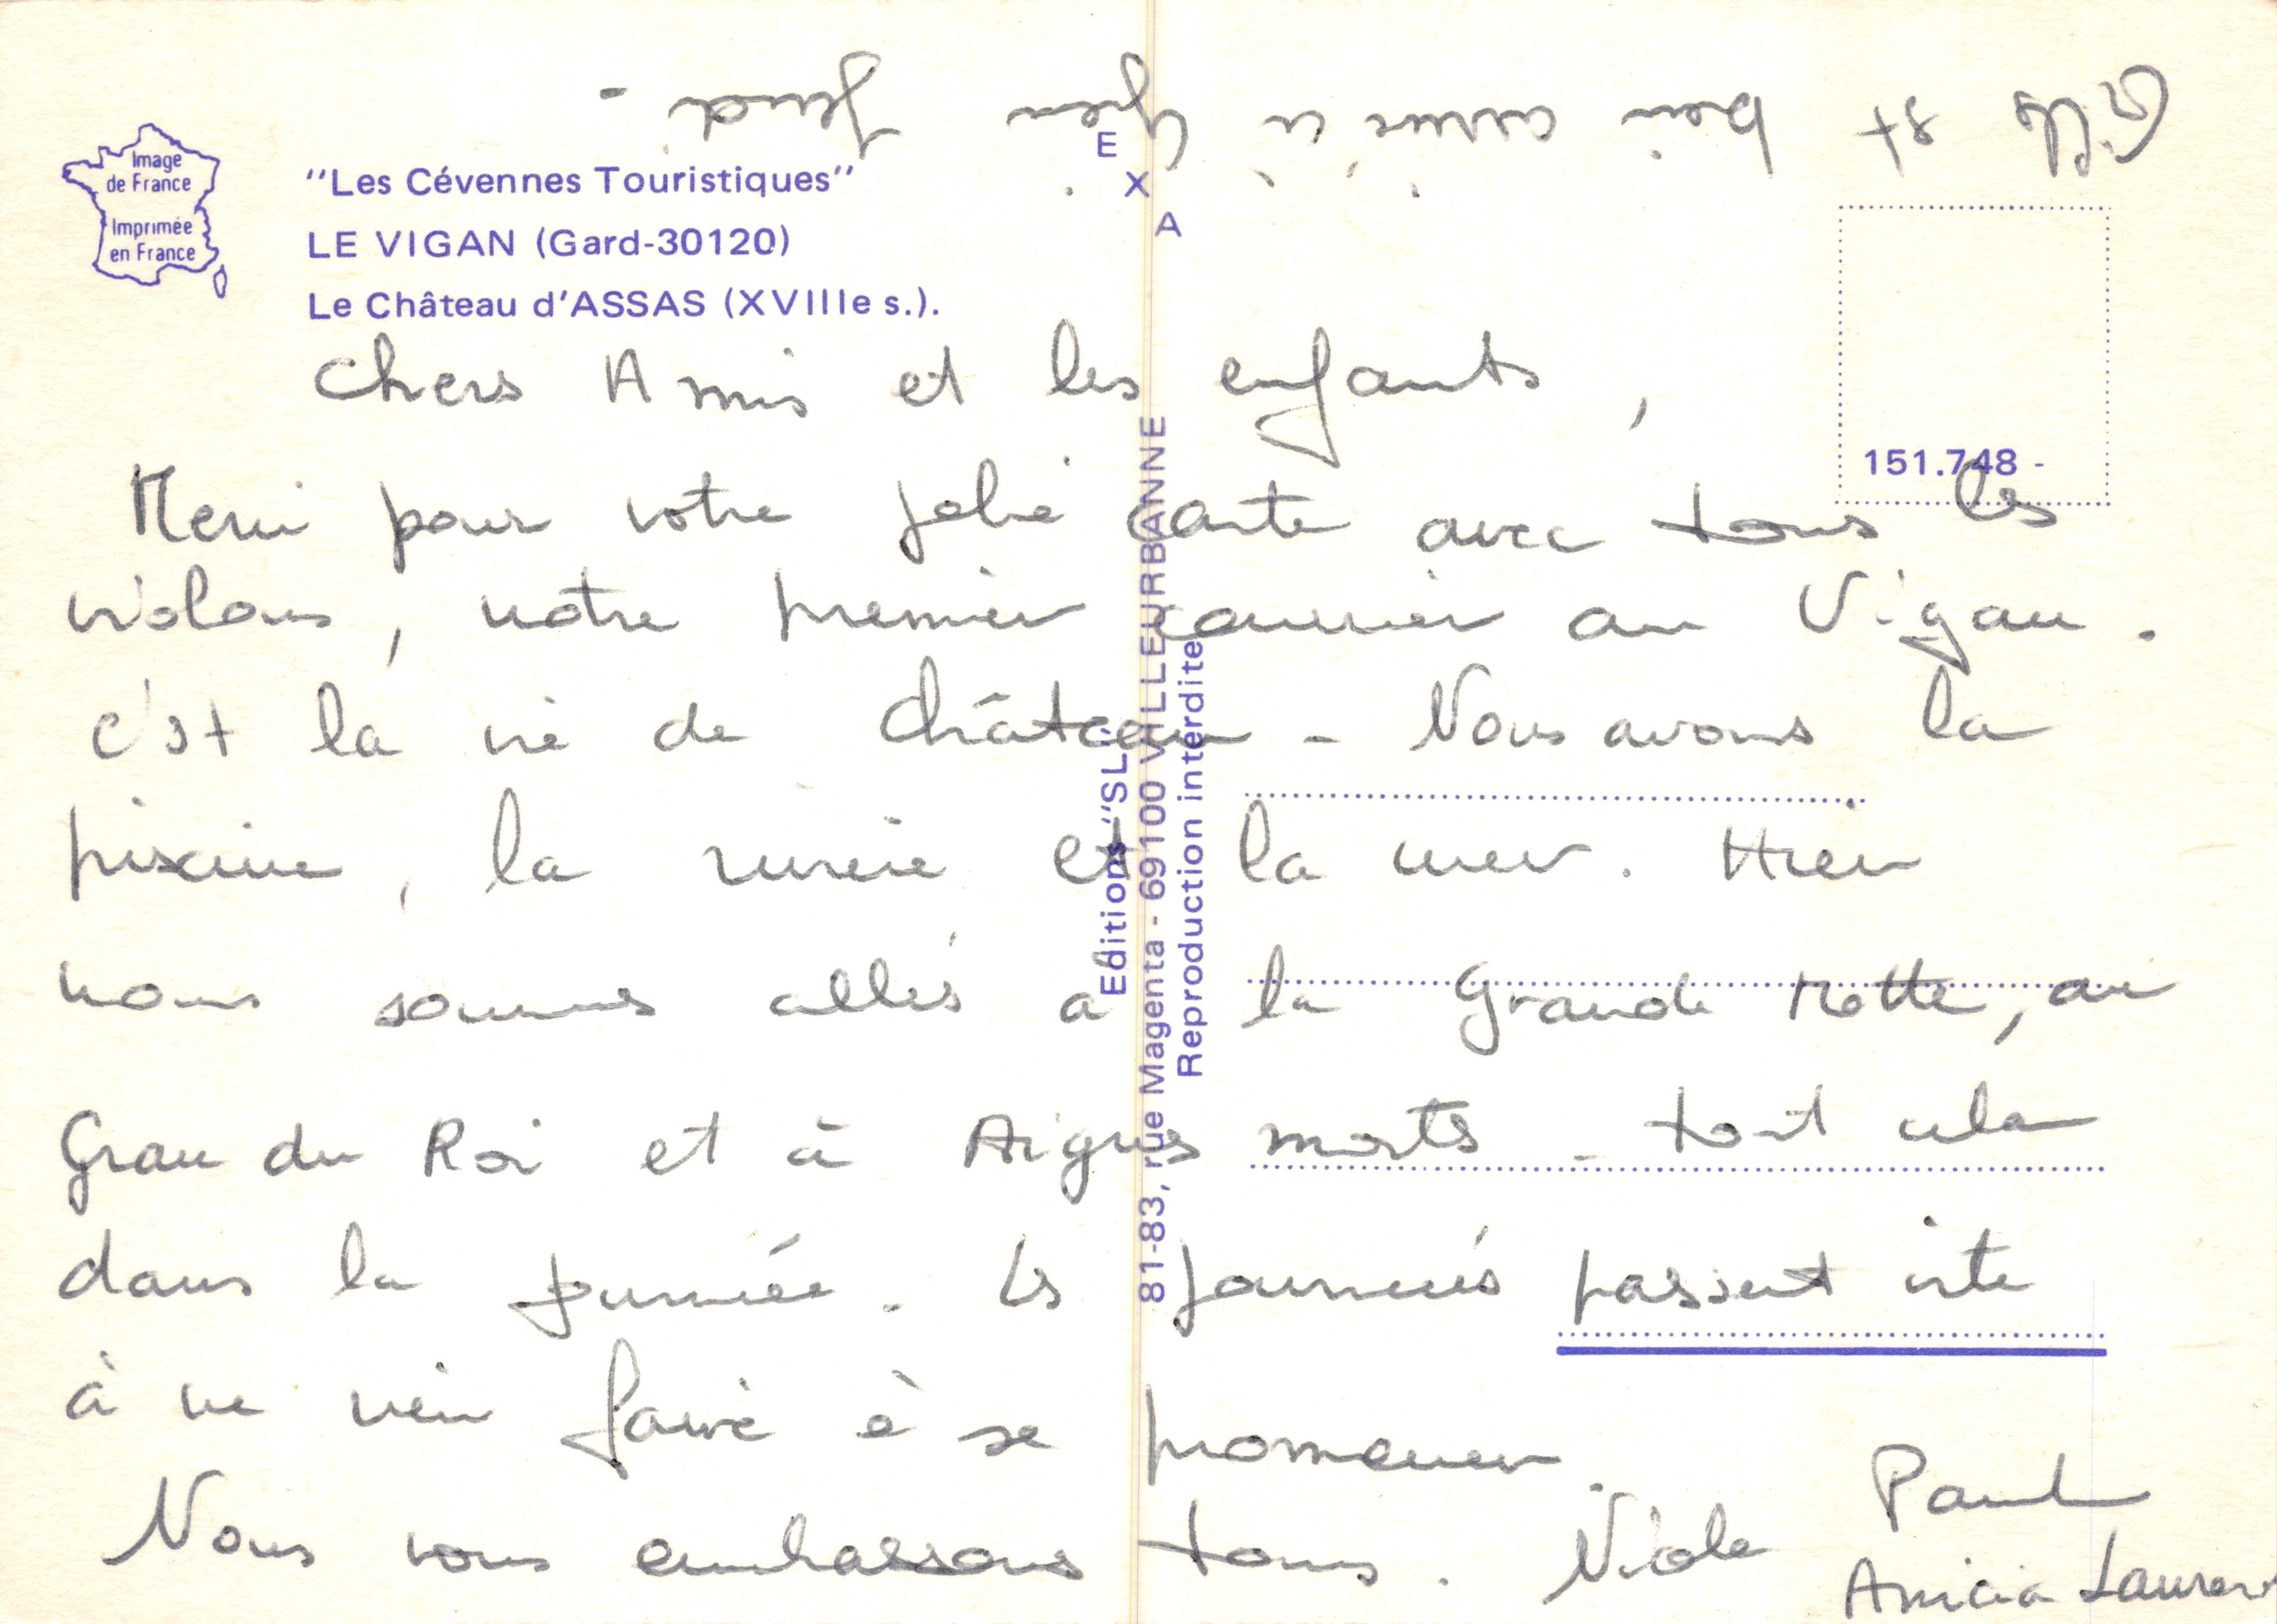 Gilles est bien arrivé à Lyon Jeudi -
Image
de France
Imprimée
en France
"Les Cévennes Touristiques"
LE VIGAN (Gard-30120)
Le Château d'ASSAS (XVIIIe s.).
E
X
A
151.748 -
Editions "SL"
81-83, rue Magenta - 69100 VILLEURBANNE
Reproduction interdite
Chers Amis et les enfants,
Merci pour votre jolie carte avec tous les
violons, notre premier courrier au Vigan.
c'est la vie de château - Nous avons la
piscine, la rivière et la mer. Hier
nous sommes allés à la Grande Motte, au
Grau du Roi et à Aigues mortes - tout cela
dans la journée. Les journées passent vite
à ne rien faire à se promener.
Nous vous embrassons tous. Nicole Paul
Laurent